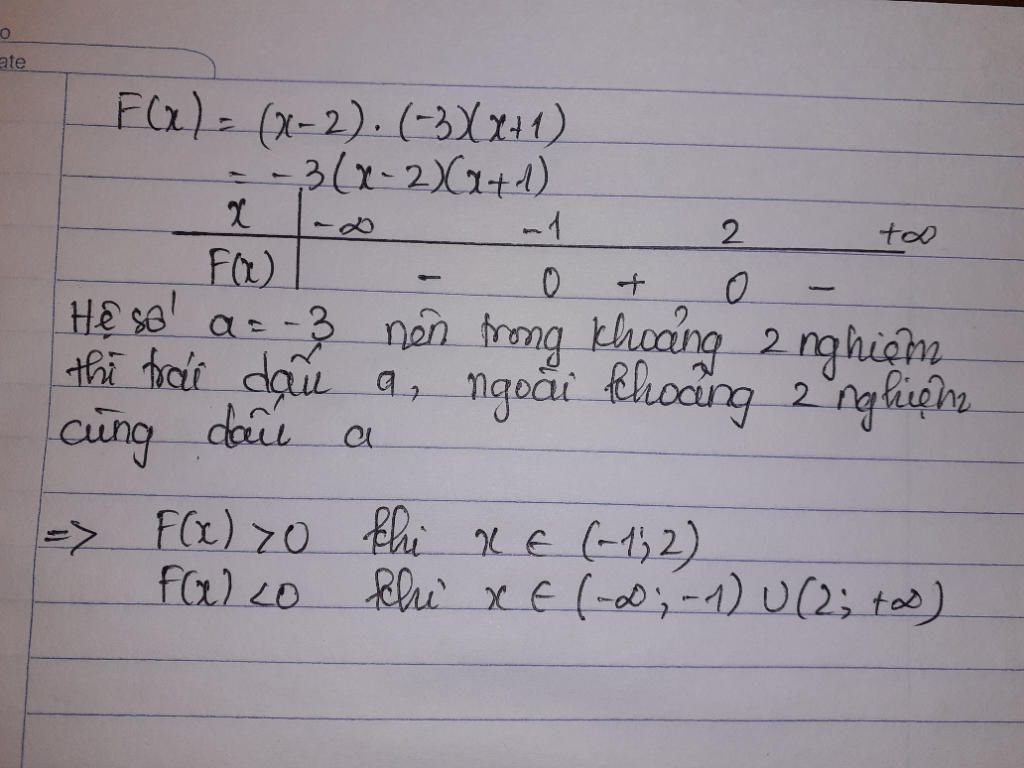 o
ate
F(x) = (x-2).(-3)(x+1)
= -3(x-2)(x+1)
x | -∞ -1 2 +∞
F(x) | - 0 + 0 -
Hệ số a = -3 nên trong khoảng 2 nghiệm
thì trái dấu a, ngoài khoảng 2 nghiệm
cùng dấu a
=> F(x) > 0 khi x ∈ (-1; 2)
F(x) < 0 khi x ∈ (-∞; -1) ∪ (2; +∞)